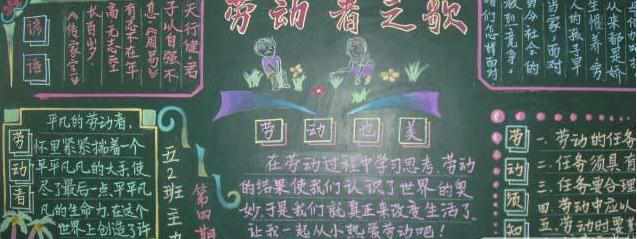 劳动者之歌
谚语
天行健,君
子以自强不
息《周易》
有志不在年
高无志空
长百岁
《传家宝》
人的孩子早
从来都是娇
生惯养,穷
当家,面对
劳动者
平凡的劳动者,
怀里紧紧揣着一个
平平凡凡的大手,使
尽了最后一点,平平凡
凡的生命力,在这个
世界上创造了许
五2班主
第四期
劳动也美
在劳动过程中学习思考,劳动
的结果使我们认识了世界的奥
妙,于是我们就真正来改变生活了,
让我一起从小热爱劳动吧!
劳动须知
一、劳动的任务
二、任务须具有
三、任务要合理
四、劳动中应以
五、劳动时要